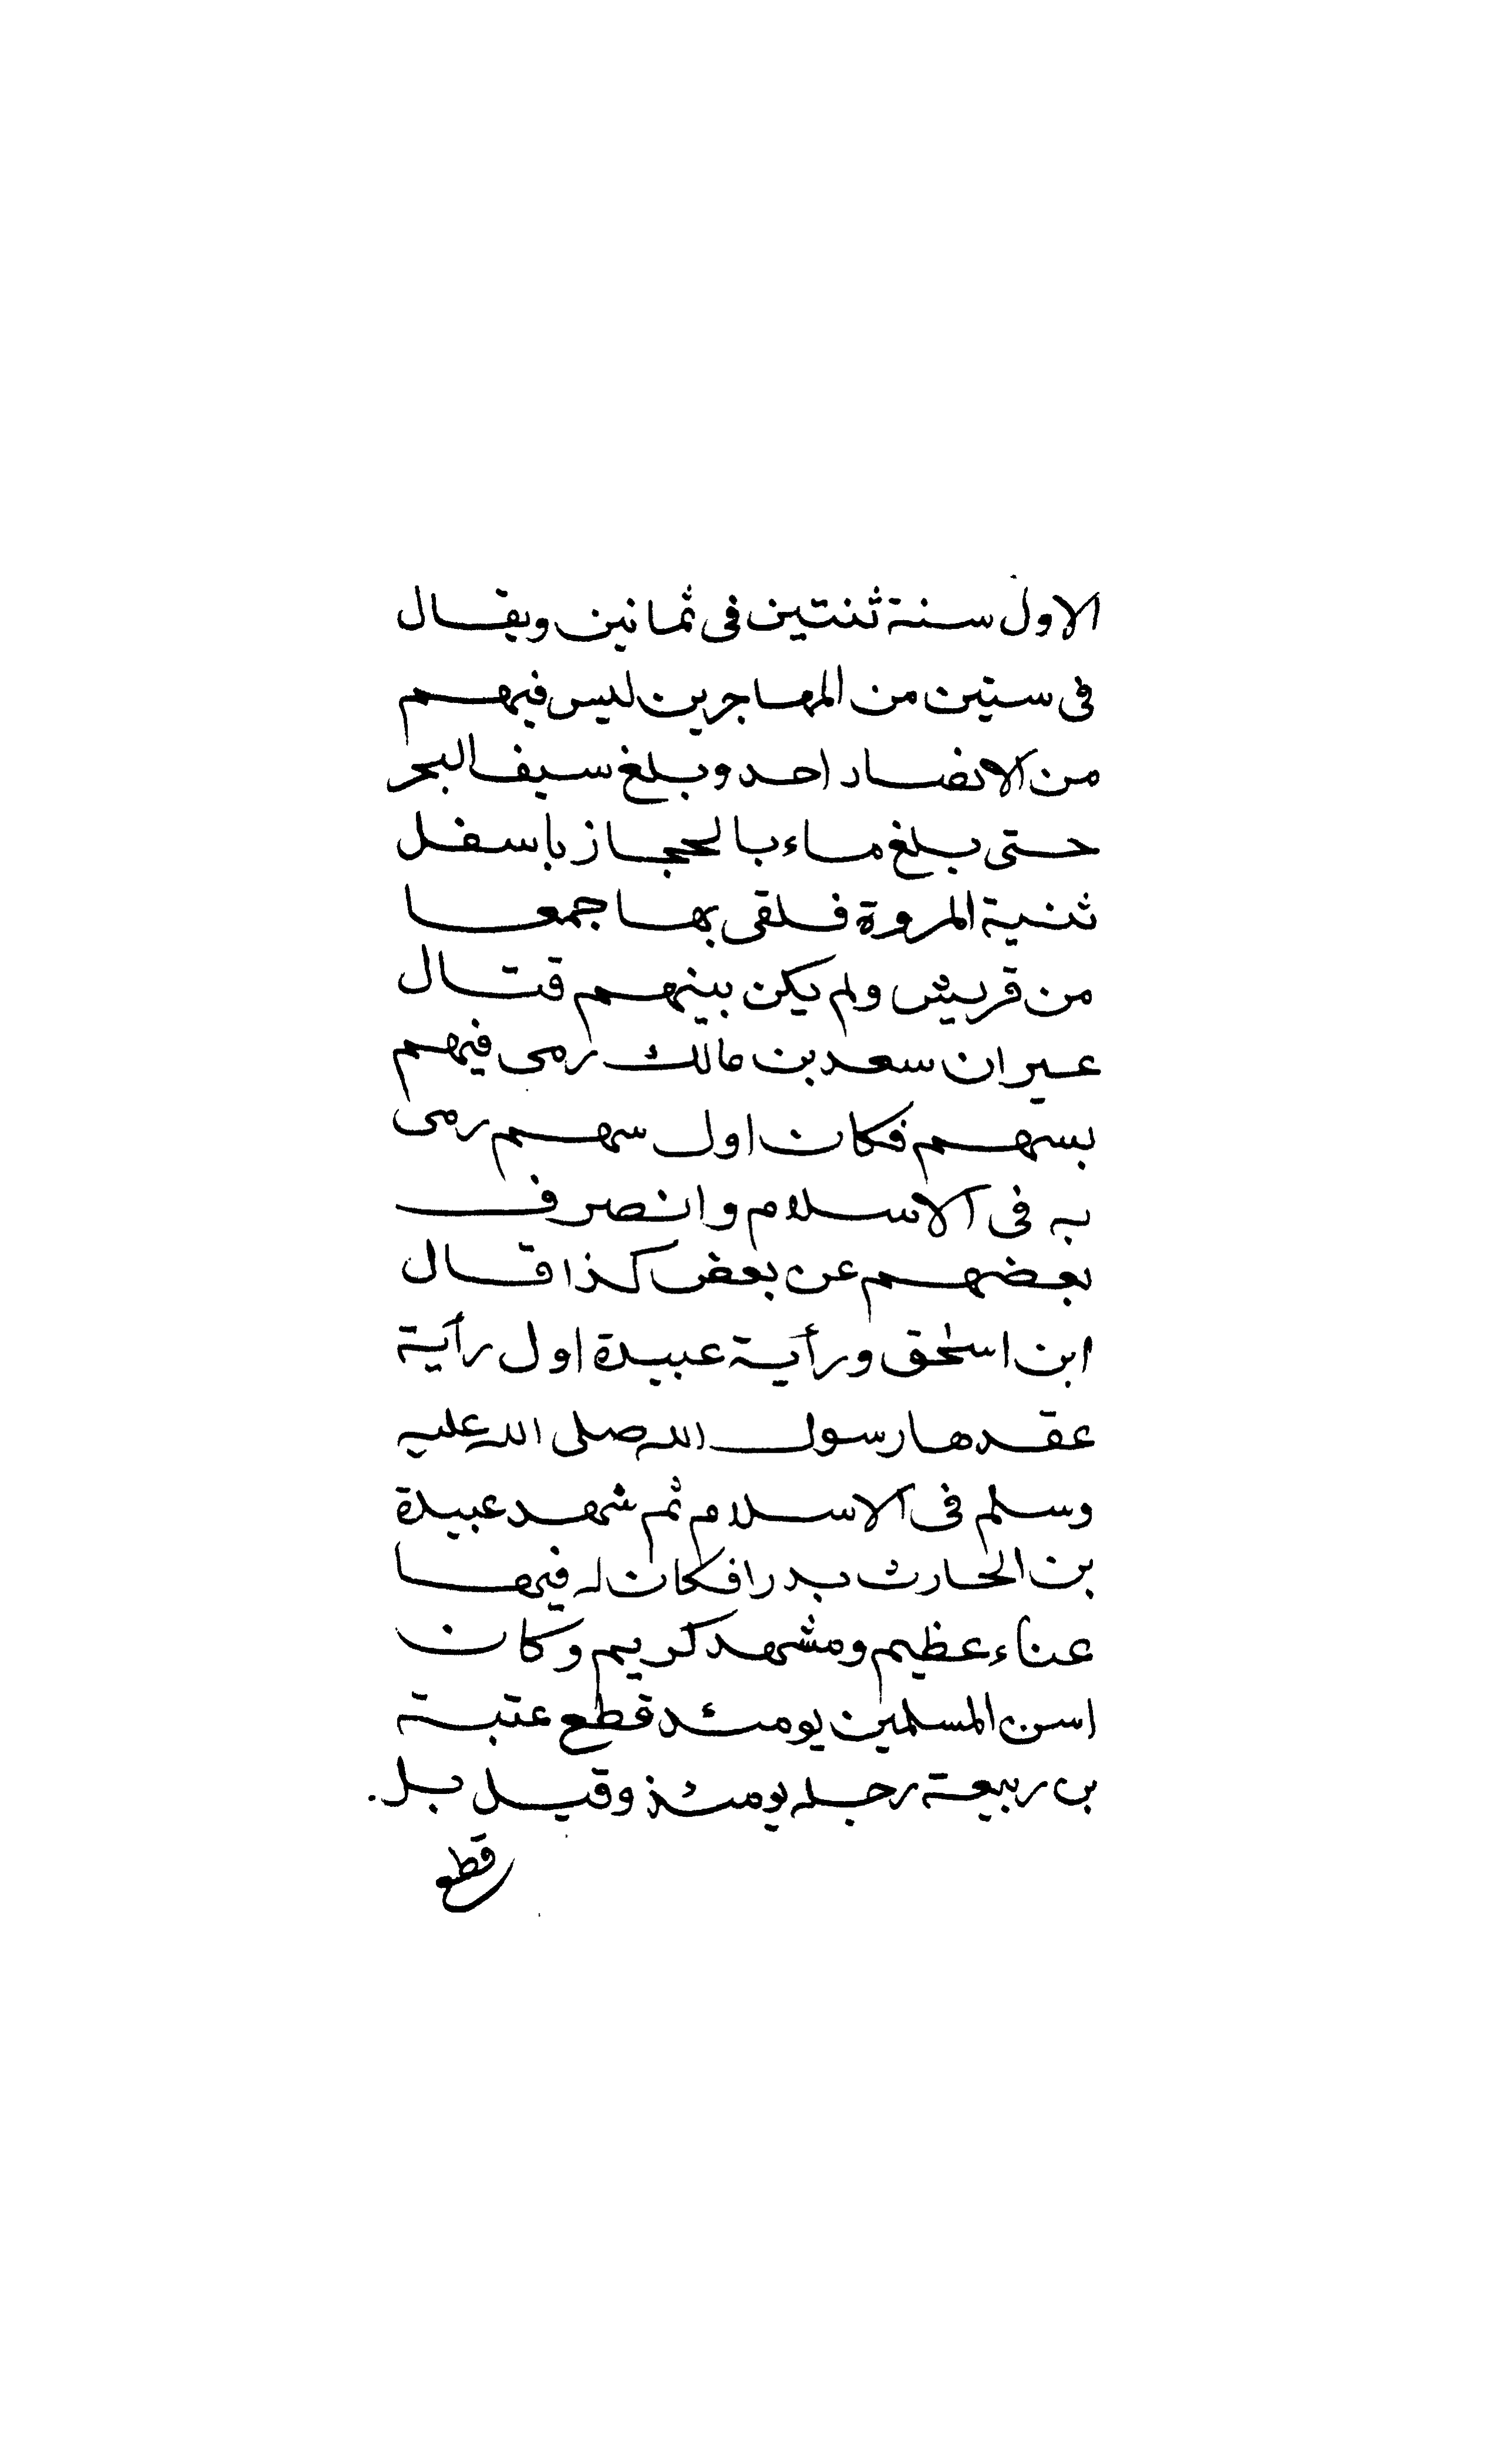 الاول سنة ثنتين فى ثمانين ويقال
فى ستين من المهاجرين ليس فيهم
من الانضار احد وبلغ سيف البحر
حتى بلغ ماء بالحجاز بأسفل
ثنية المروة فلقى بها جمعا
من قريش ولم يكن بينهم قتال
عير ان سعد بن مالك رمى فيهم
بسهم فكان اول سهم رمى
به فى الاسلام وانصرف
بعضهم عن بعض كذا قال
ابن اسحٰق ورأية عبيدة اول رأية
عقدها رسول الله صلى الله عليه
وسلم فى الاسلام ثم شهد عبيدة
بن الحارث بدرا فكان له فيها
عناء عظيم ومشهد كريم وكان
اسن المسلمين يومئد قطع عتبة
بن ربيعة رجله يومئذ وقيل بل.
قطع